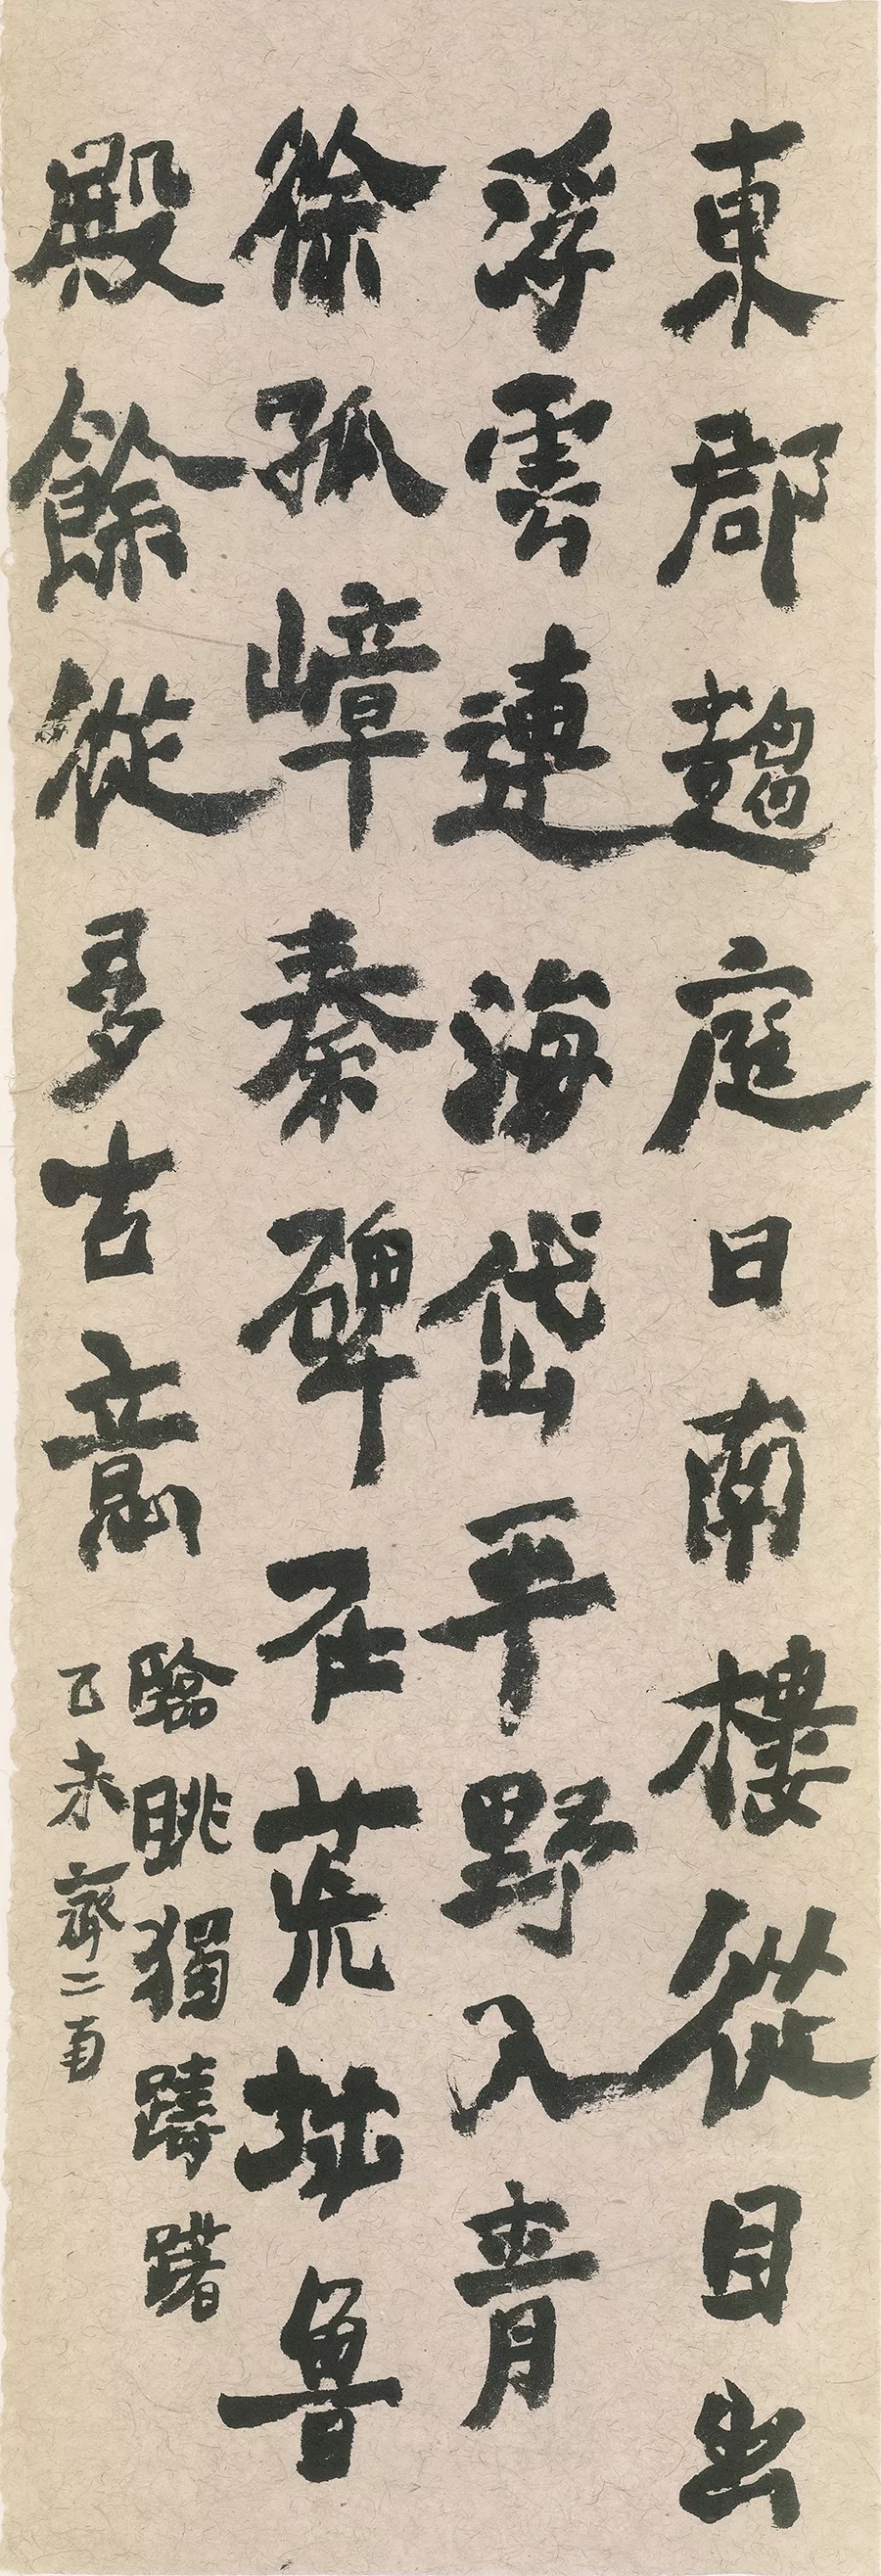 東郡趨庭日南樓從目出
浮雲連海岱平野入青
徐孤嶂秦碑在荒址魯
殿餘從多古意
臨眺獨躊躇
己未齊二